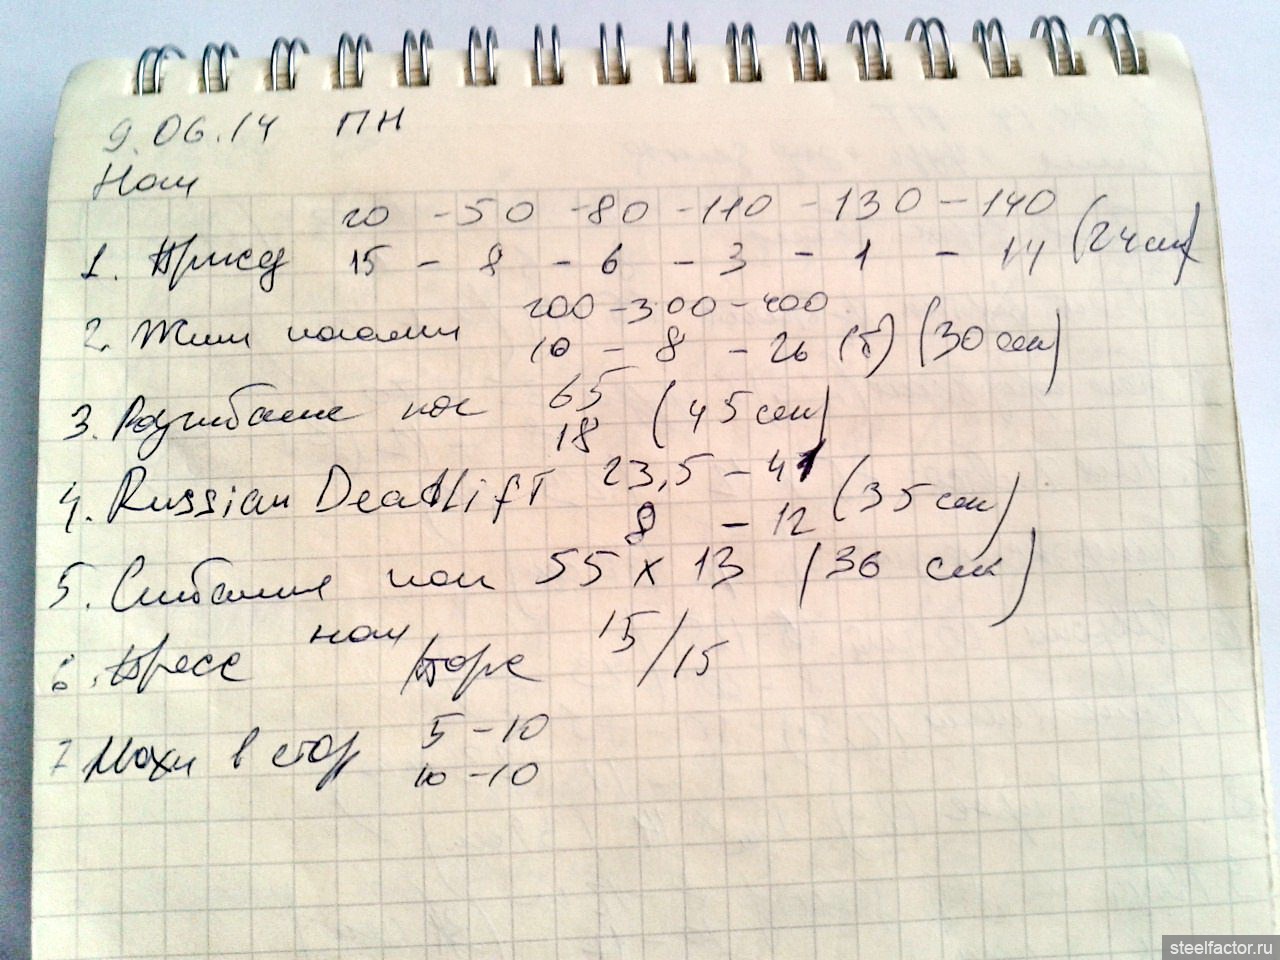 9.06.14 ПН
Ноги
20 - 50 - 80 - 110 - 130 - 140
1. Присед 15 - 8 - 6 - 3 - 1 - 14 (24 сек)
200 - 300 - 400
2. Жим ногами 10 - 8 - 26 (т) (30 сек)
65
3. Разгибание ног 18 (45 сек)
23,5 - 41
4. Russian Deadlift 8 - 12 (35 сек)
5. Сгибания ног 55 x 13 (36 сек)
6. Пресс ноги/торс 15/15
5 - 10
7 Махи в стор 10 - 10
steelfactor.ru